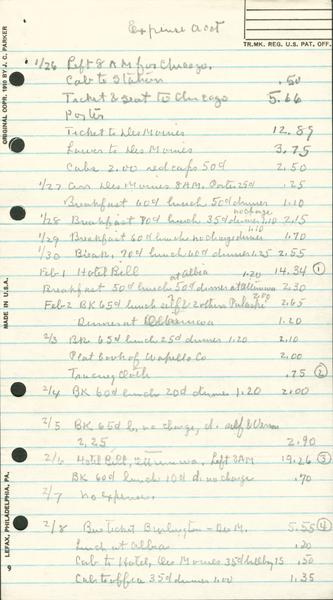 Expense acct
TR.MK. REG. U.S. PAT. OFF.
ORIGINAL COPR. 1910 BY J. C. PARKER
1/26 Left 8 AM for Chicago.
Cab to Station .50
Ticket & Seat to Chicago 5.66
Porter
Ticket to Des Moines 12.89
Lower to Des Moines 3.75
Cabs 2.00 red caps 50¢ 2.50
1/27 Arr. Des Moines 8AM. Porter 25¢ .25
Breakfast 60¢ lunch 50¢ dinner 1.10
no charge
1/28 Breakfast 70¢ lunch 35¢ dinner 1.10 2.15
1.10
1/29 Breakfast 60¢ lunch no charge dinner 1.70
1/30 Break. 70¢ lunch 60¢ dinner 1.25 2.55
Feb 1 Hotel Bill 14.34 1
at Albia 1.20
Breakfast 50¢ lunch 50¢ dinner at Ottumwa 2.30
2.00
Feb 2 BK 65¢ lunch self & 2 others 2.65
Dinner at Ottumwa 1.20
2/3 BK 65¢ lunch 25¢ dinner 1.20 2.10
Plat book of Wapello Co 2.00
Tracing Cloth .75 2
2/4 BK 60¢ lunch 20¢ dinner 1.20 2.00
2/5 BK 65¢ l. no charge, d. self &
2.25 2.90
2/6 Hotel Bill, Ottumwa, Left 8AM 19.26 3
BK 60¢ lunch 10¢ d. no charge .70
2/7 no expense.
2/8 Bus Ticket Burlington - Des M. 5.55 4
Lunch at Albia .20
Cab to Hotel, Des Moines 35¢ 15 .50
Cab to office 35¢ dinner 1.00 1.35
MADE IN U.S.A.
LEFAX, PHILADELPHIA, PA.
9